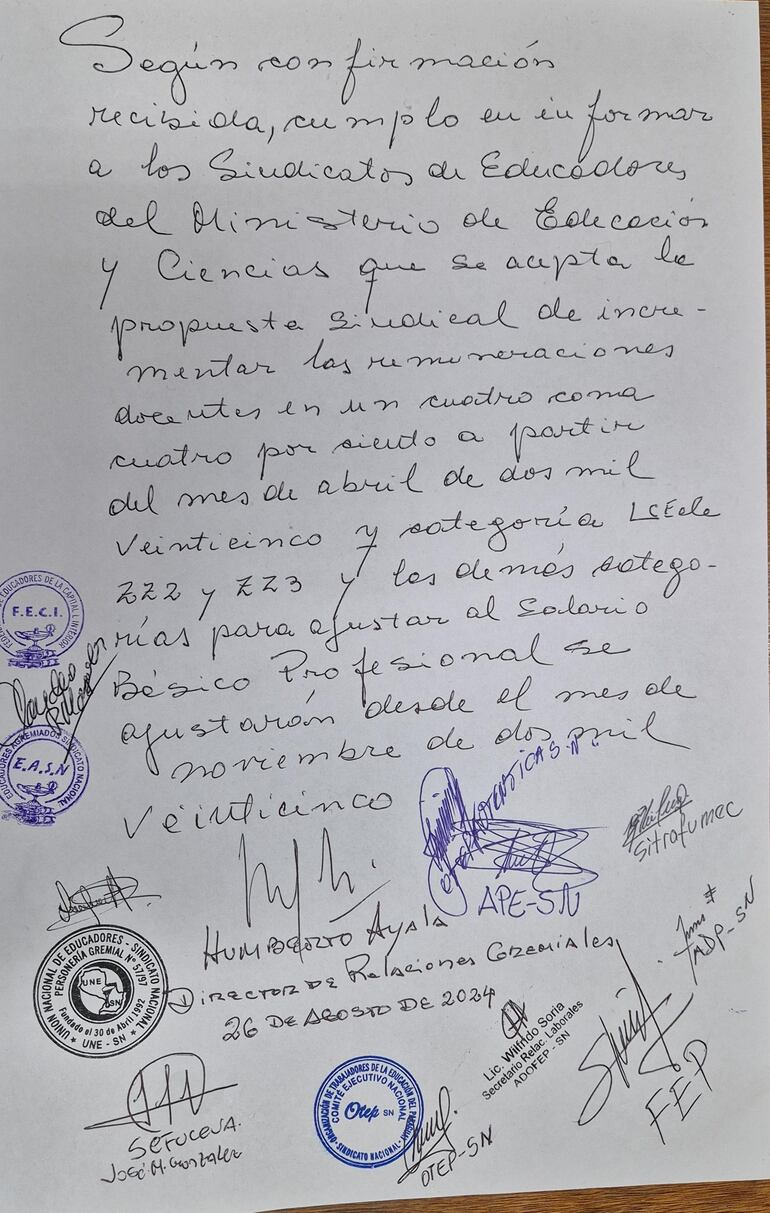 Según confirmación
recibida, cumplo en informar
a los Sindicatos de Educadores
del Ministerio de Educación
y Ciencias que se acepta la
propuesta sindical de incre-
mentar las remuneraciones
docentes en un cuatro coma
cuatro por siento a partir
del mes de abril de dos mil
Veinticinco y categoría
ZZ2 y ZZ3 y las demás catego-
rías para ajustar al Salario
Básico Profesional se
ajustarán desde el mes de
noviembre de dos mil
Veinticinco
F.E.C.I.
EDUCADORES DE LA CAPITAL E INTERIOR
EDUCADORES AGREMIADOS SINDICATO NACIONAL
E.A.S.N
APE-SN
Sitrafumec
HUMBERTO AYALA
DIRECTOR DE RELACIONES GREMIALES
26 DE AGOSTO DE 2024
UNION NACIONAL DE EDUCADORES - SINDICATO NACIONAL
PERSONERÍA GREMIAL Nº 57/97
UNE
SN
Fundado el 30 de Abril 1992
UNE - SN
Lic. Wilfrido Soria
Secretario Relac. Laborales
ADOFEP - SN
FEP
SEFUCEVA.
José M. Gonzalez
ORGANIZACIÓN DE TRABAJADORES DE LA EDUCACIÓN DEL PARAGUAY
COMITÉ EJECUTIVO NACIONAL
Otep SN
SINDICATO NACIONAL
OTEP-SN